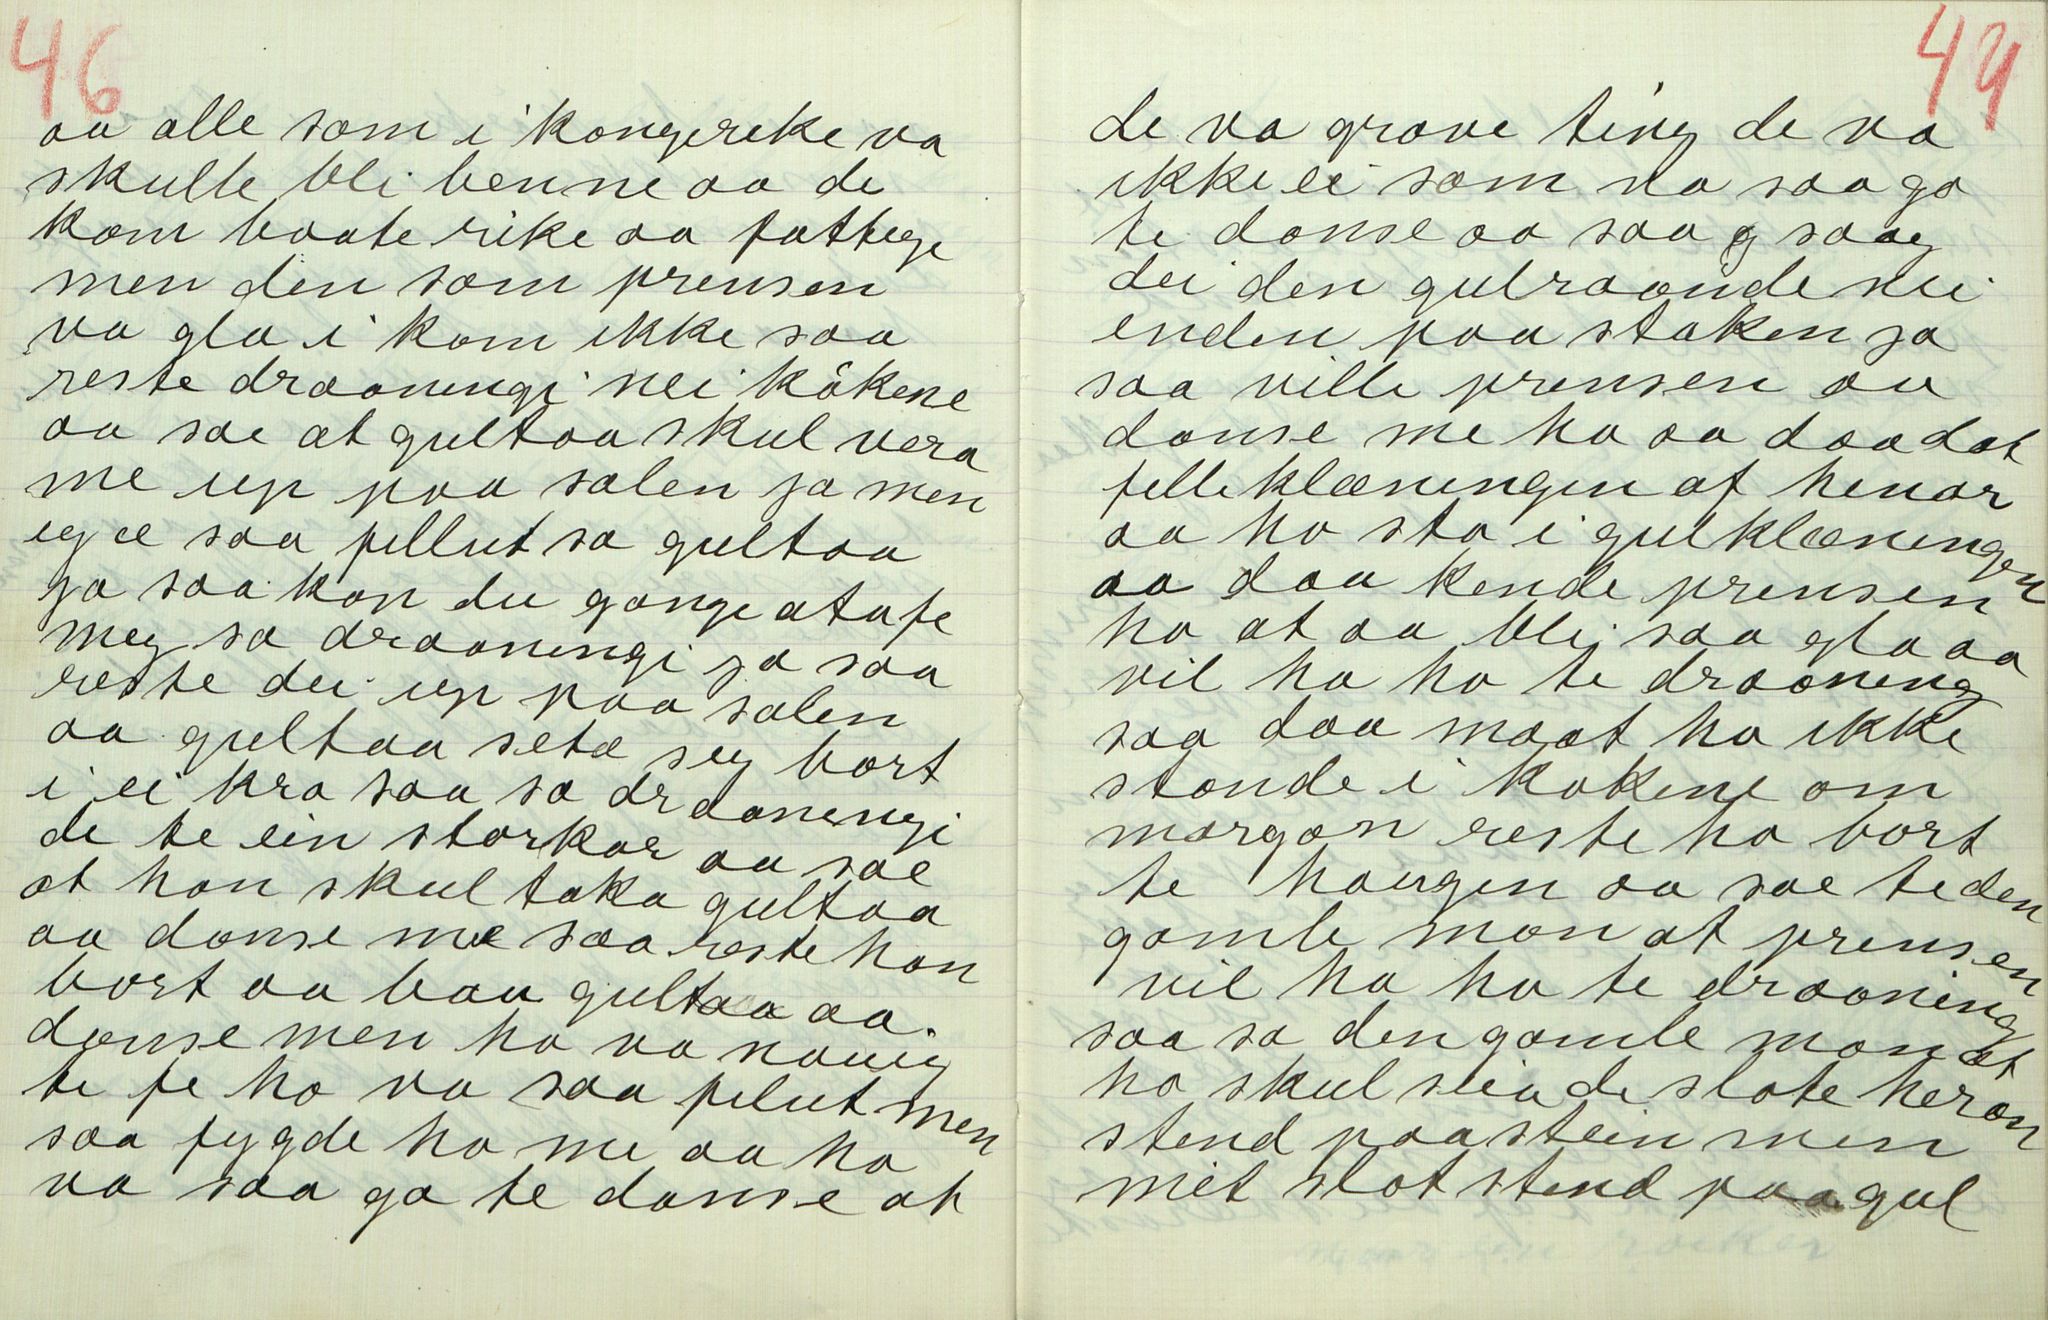 46
aa alle som i kongereke va
skulle bli benne aa de
kom baate rike aa fattege
men den som prensen
va gla i kom ikke saa
reste draaningi nei kökene
aa sae at gultaa skul vera
me up paa salen ja men
eg e saa fillut sa gultaa
ja saa kan du gange atafe
meg sa draaningi ja saa
reste dei up paa salen
aa gultaa seta seg bort
i ei kra saa sa draaningi
de te ein storkar aa sae
at han skul taka gultaa
aa danse me saa reste han
bort aa bau gultaa aa.
danse men ho va nauig
te fe ho va saa filut men
saa fygde ho me aa ho
va saa go te danse at
49
de va grove ting de va
ikke ei som va saa go
te danse aa saa g saag
dei den gulraande nei
enden paa staken ja
saa ville prensen aa
danse me ho aa daa dat
filleklæningen af henar
aa ho sto i gulklæningen
aa daa kende prensen
ho at aa blei saa gla aa
vil ha ho te draaning
saa daa maat ho ikke
stande i kokene om
morgon reste ho bort
te haugen aa sae te den
gamle man at prensen
vil ha ho te draaning
saa sa den gamle man at
ho skul seia de slote heran
stend paa stein men
mit slot stend paa gul